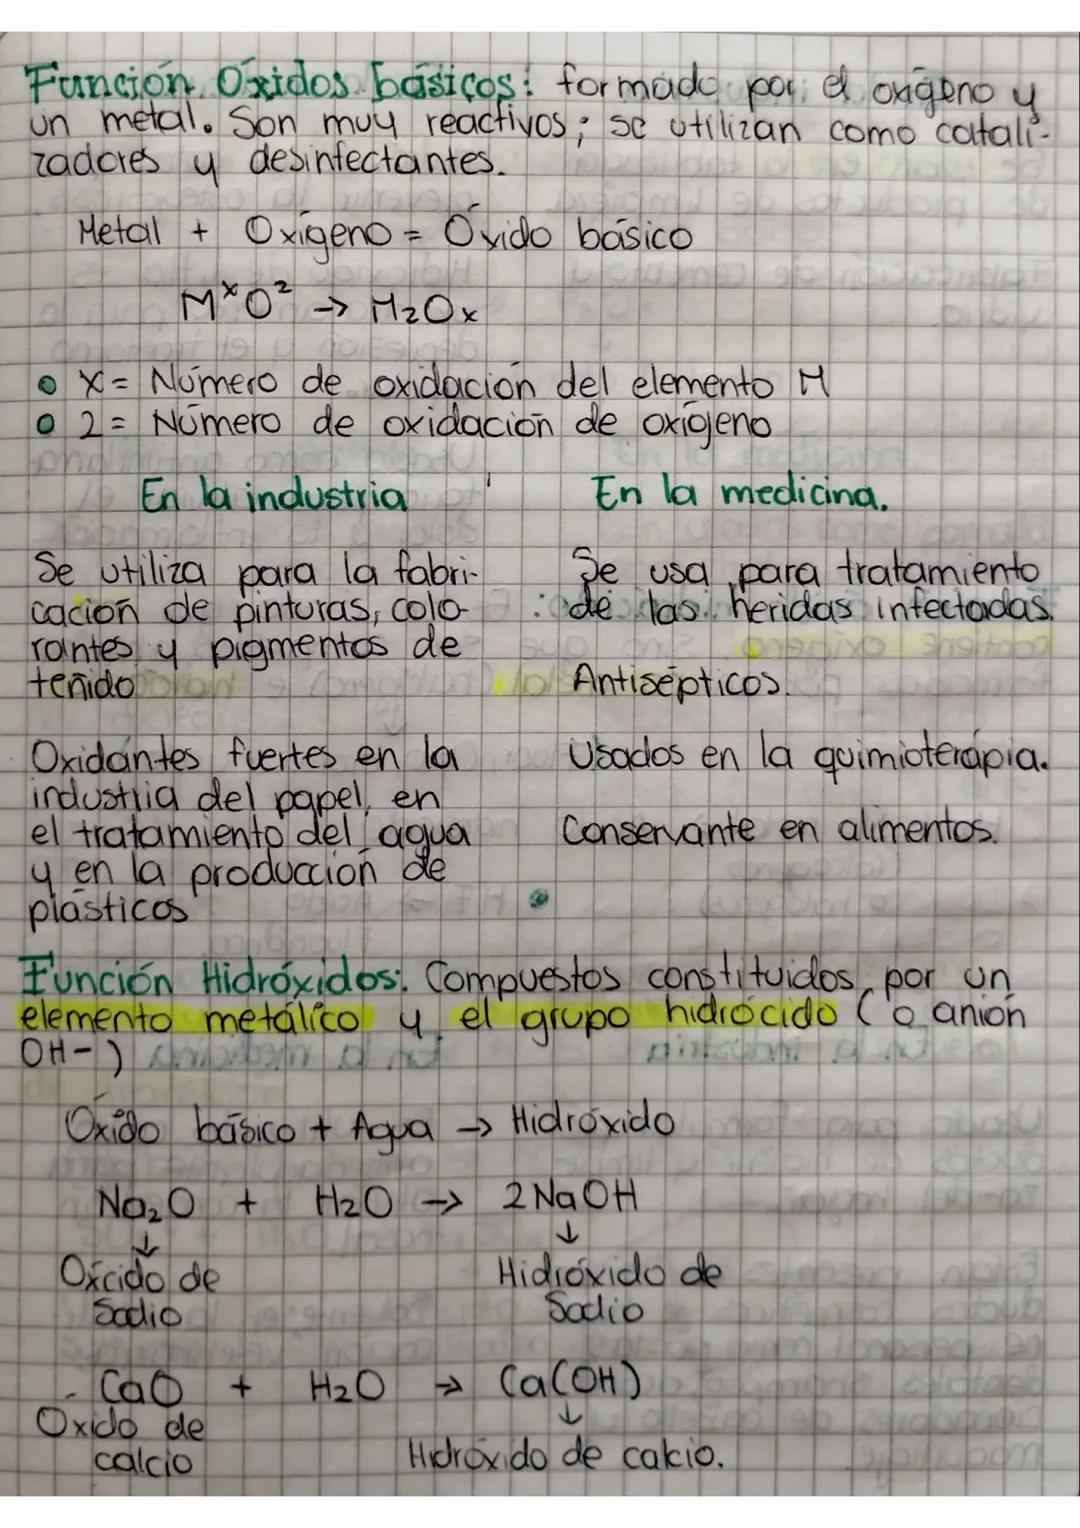 Función Óxidos básicos: formado por el oxígeno y
un metal. Son muy reactivos; se utilizan como catali-
zadores y desinfectantes.
Metal + Oxígeno = Óxido básico
MˣO² → M₂Oₓ
X = Número de oxidación del elemento M
2 = Número de oxidación de oxígeno
En la industria
Se utiliza para la fabri-
cación de pinturas, colo-
rantes y pigmentos de
teñido
Oxidantes fuertes en la
industria del papel, en
el tratamiento del agua
y en la producción de
plásticos
En la medicina.
Se usa para tratamiento
de las heridas infectadas.
Antisépticos.
Usados en la quimioterápia.
Conservante en alimentos.
Función Hidróxidos: Compuestos constituidos por un
elemento metálico y el grupo hidrócido (o anión
OH-)
Oxido básico + Agua → Hidróxido
Na₂O + H₂O → 2NaOH
↓ ↓
Oxcido de Sodio
Hidróxido de Sodio
- CaO + H₂O → Ca(OH)
↓
Oxido de calcio
Hidróxido de calcio.